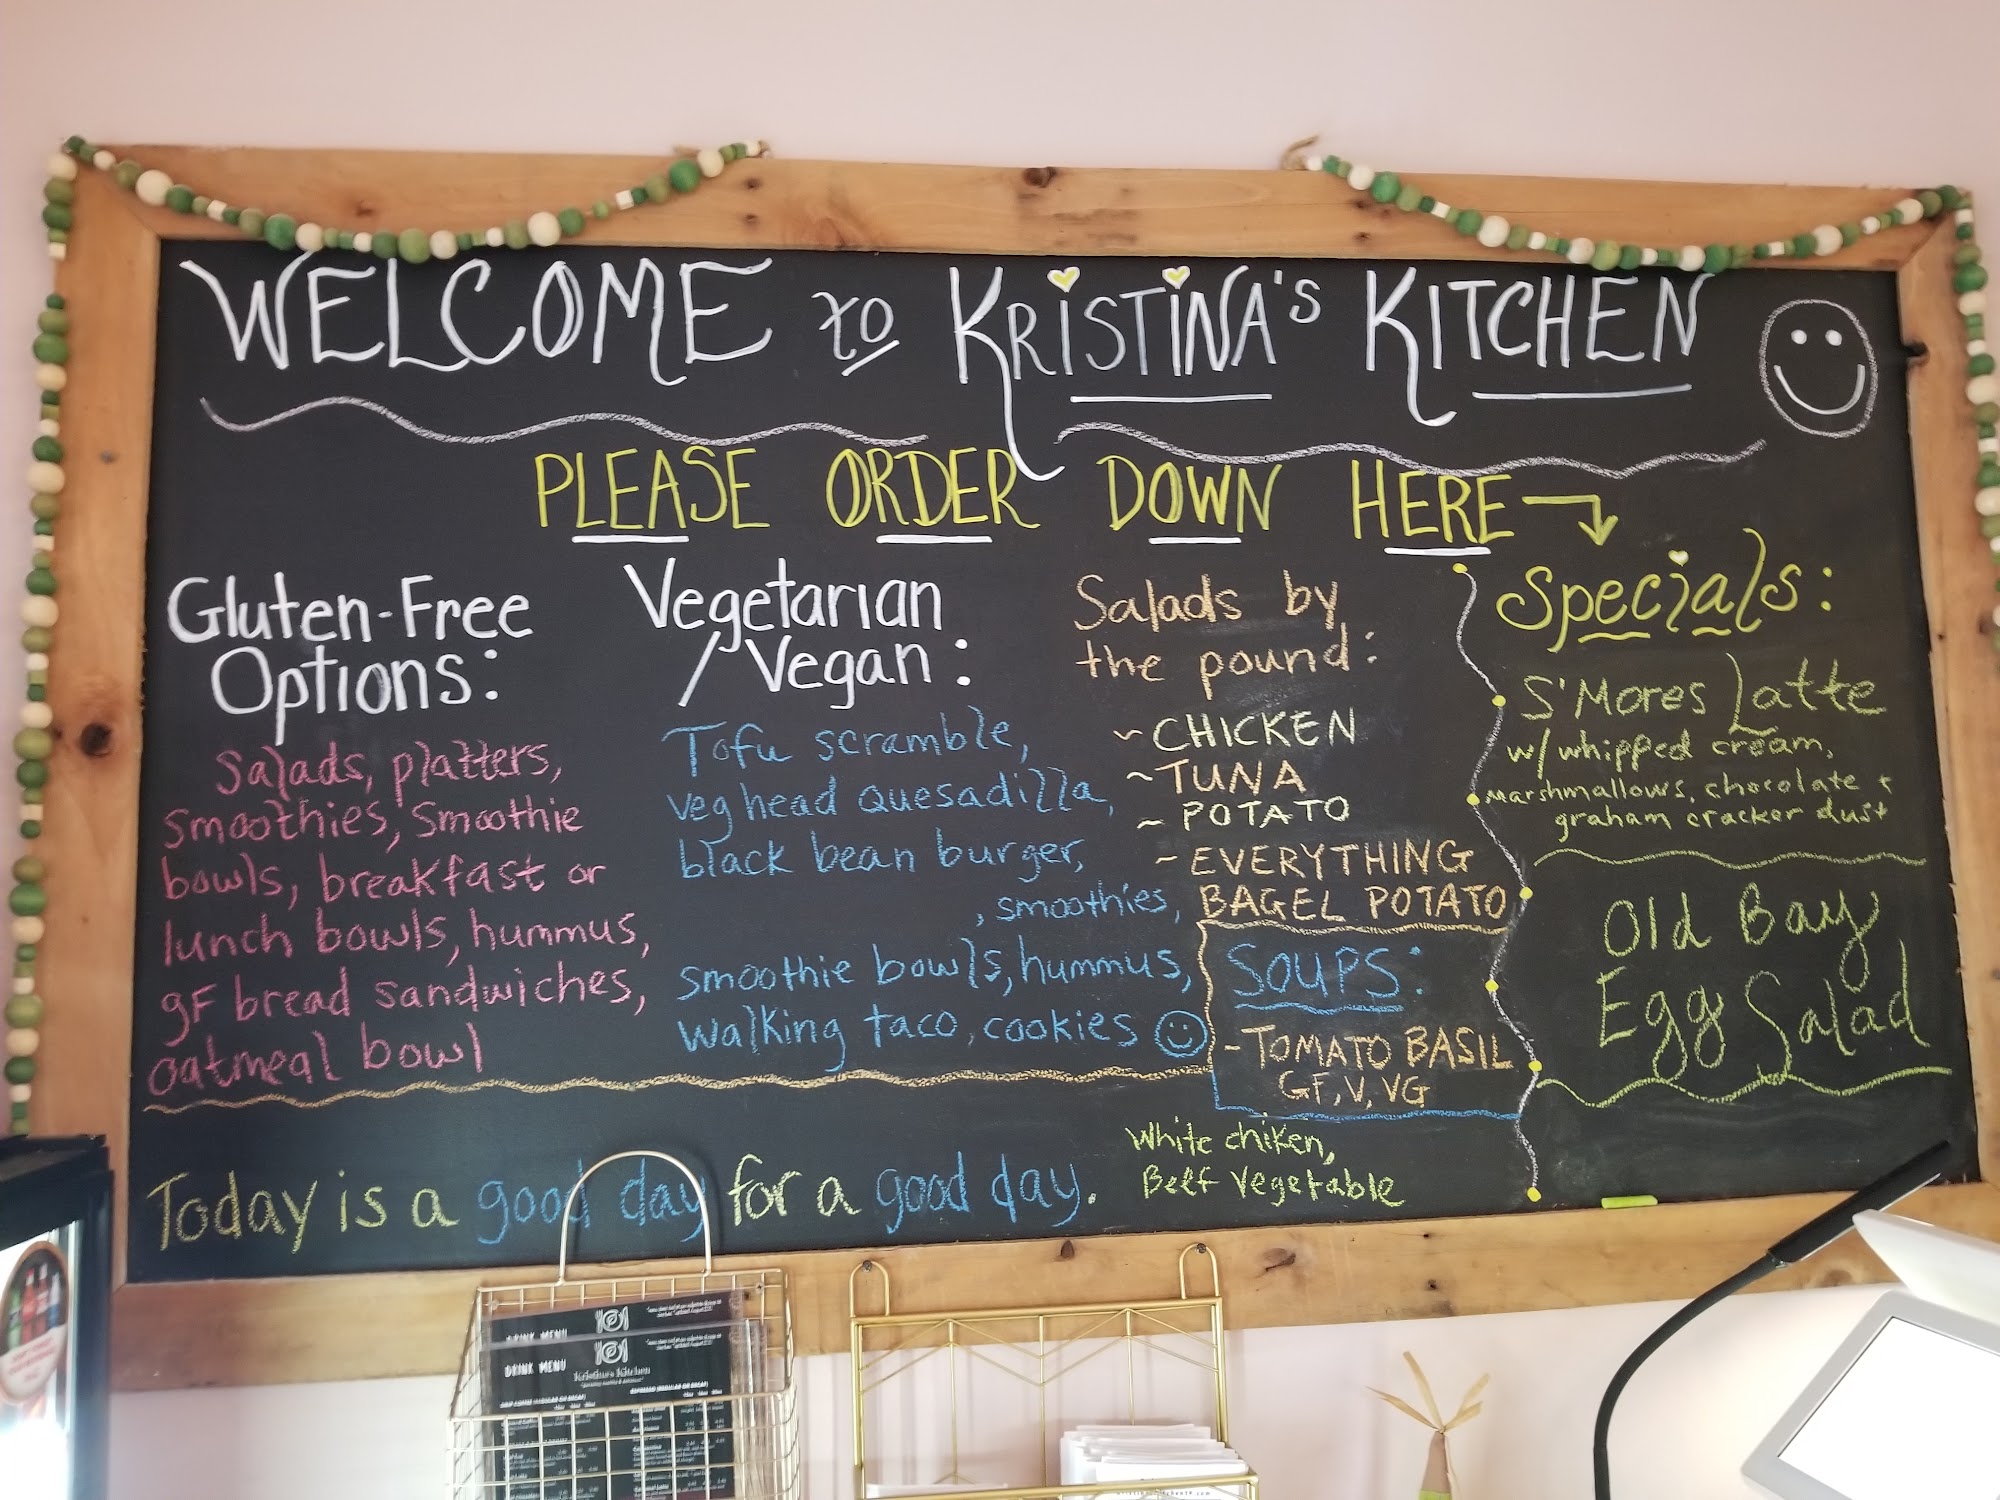 WELCOME to KRISTINA'S KITCHEN
PLEASE ORDER DOWN HERE
Gluten-Free
Options:
Salads, platters,
smoothies, smoothie
bowls, breakfast or
lunch bowls, hummus,
gF bread sandwiches,
oatmeal bowl
Vegetarian
/Vegan:
Tofu scramble,
veghead quesadilla,
black bean burger,
, smoothies,
smoothie bowls, hummus,
walking taco, cookies
Salads by
the pound:
~ CHICKEN
~ TUNA
~ POTATO
~ EVERYTHING
BAGEL POTATO
SOUPS:
- TOMATO BASIL
GF, V, VG
White chiken,
Beef Vegetable
Specials:
S'Mores Latte
w/ whipped cream,
marshmallows, chocolate +
graham cracker dust
Old Bay
Egg Salad
Today is a good day for a good day.
DRINK MENU
DRINK MENU
Kristina's Kitchen